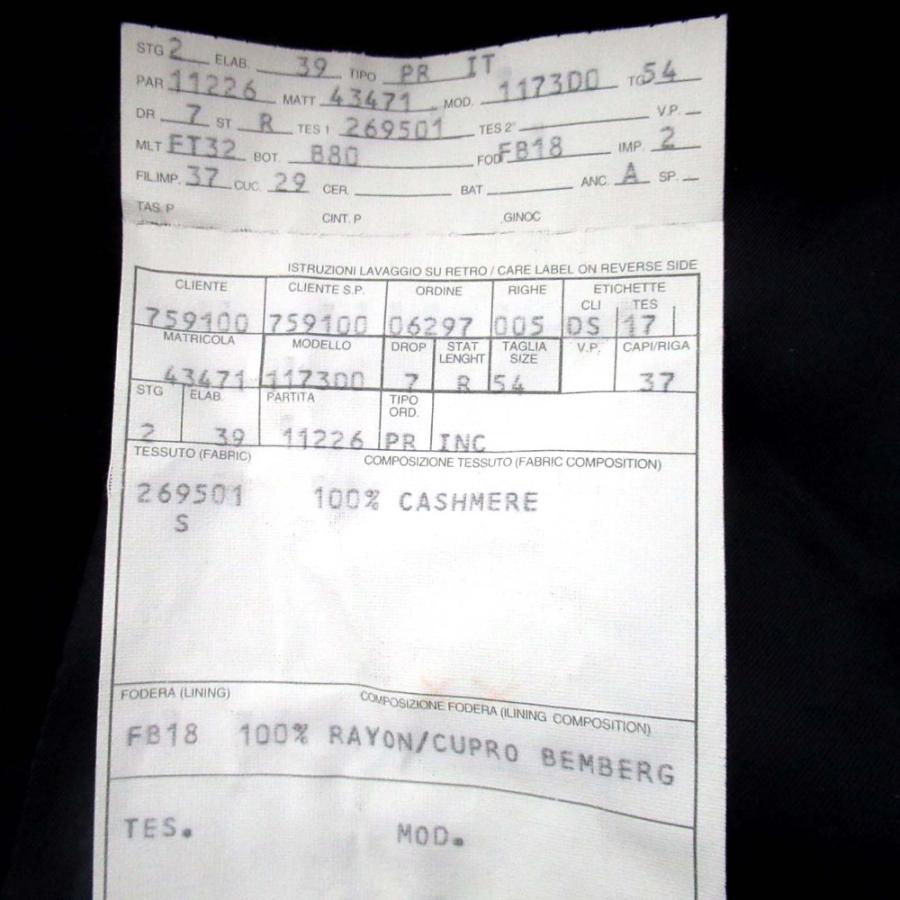 STG 2 ELAB. 39 TIPO PR IT
PAR 11226 MATT 43471 MOD. 117300 TG 54
DR 7 ST R TES 1 269501 TES 2° V.P.
MLT FT32 BOT. B80 FOD FB18 IMP. 2
FIL.IMP. 37 CUC. 29 CER. BAT ANC. A SP.
TAS. P CINT. P GINOC
ISTRUZIONI LAVAGGIO SU RETRO / CARE LABEL ON REVERSE SIDE
CLIENTE CLIENTE S.P. ORDINE RIGHE ETICHETTE
CLI TES
759100 759100 06297 005 DS 17
MATRICOLA MODELLO DROP STAT LENGHT TAGLIA SIZE V.P. CAPI/RIGA
43471 117300 7 R 54 37
STG ELAB. PARTITA TIPO ORD.
2 39 11226 PR INC
TESSUTO (FABRIC) COMPOSIZIONE TESSUTO (FABRIC COMPOSITION)
269501 100% CASHMERE
S
FODERA (LINING) COMPOSIZIONE FODERA (ILINING COMPOSITION)
FB18 100% RAYON/CUPRO BEMBERG
TES. MOD.